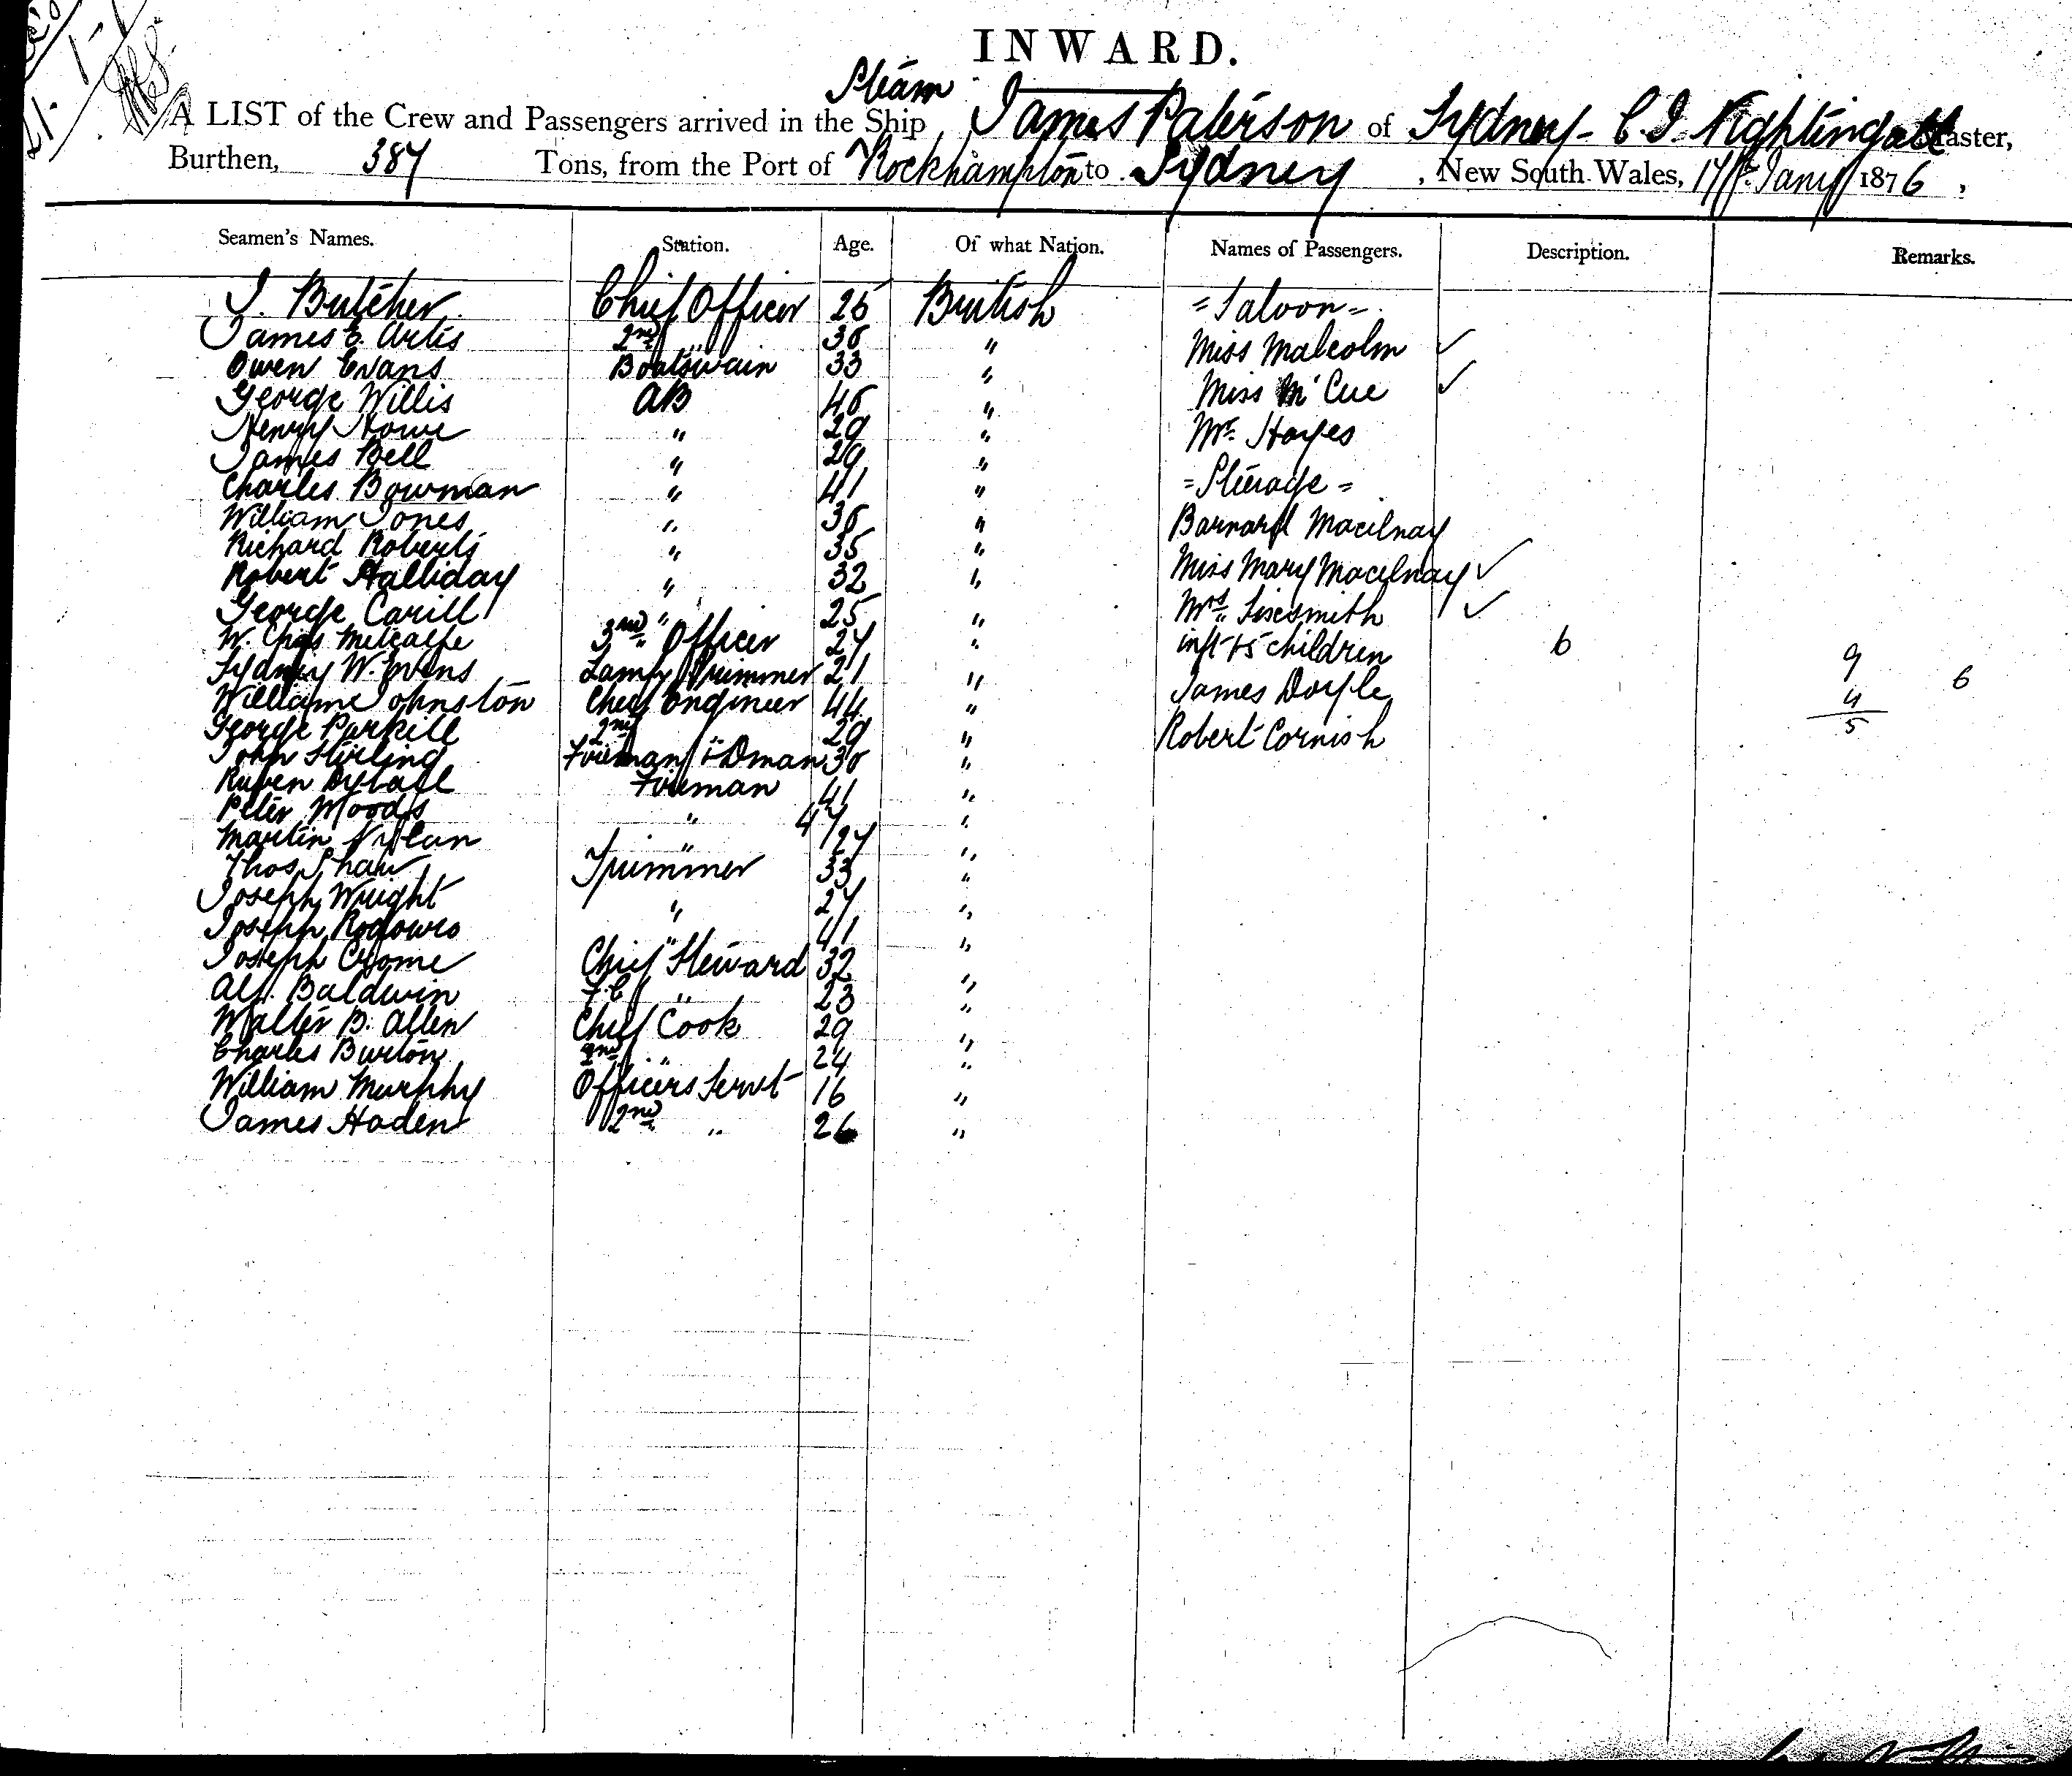 INWARD.
Steam
A LIST of the Crew and Passengers arrived in the Ship James Paterson of Sydney - C. J. Nightingale Master,
Burthen, 387 Tons, from the Port of Rockhampton to Sydney, New South Wales, 17th Jany 1876,
Seamen's Names. Station. Age. Of what Nation. Names of Passengers. Description. Remarks.
J. Butcher Chief Officer British = Saloon =
James E. Artis 2nd " " Miss Malcolm ✓
Owen Evans Boatswain 33 " Miss McCue ✓
George Willis AB " Mr. Hayes
Henry Howe " 29 "
James Bell " 29 " = Steerage =
Charles Bowman " 41 "
William Jones " " Barnard Macilnay
Richard Roberts " 35 " Miss Mary Macilnay ✓
Robert Halliday " 32 " Mrs. ✓
George Carill " 25 " inft + 5 children 6 9 6
W. Chas Metcalfe 3rd Officer 27 " James Doyle 4
Sydney W. Evens Lamp Trimmer 21 " Robert Cornish 5
William Johnston Chief Engineer 44 "
George Parkill 2nd " 29 "
John Stirling Fireman + Dman "
Ruben Dyball Fireman 41 "
Peter Woods " 47 "
Martin Nylan " 27 "
Thos Shaw Trimmer 33 "
Joseph Wright " 27 "
Joseph " 41 "
Joseph Crome Chief Steward 32 "
Alf. Baldwin F.C. " 23 "
Walter B. Allen Chief Cook 29 "
Charles Burton 2nd " 24 "
William Murphy Officers Servt 16 "
James Haden 2nd " 26 "